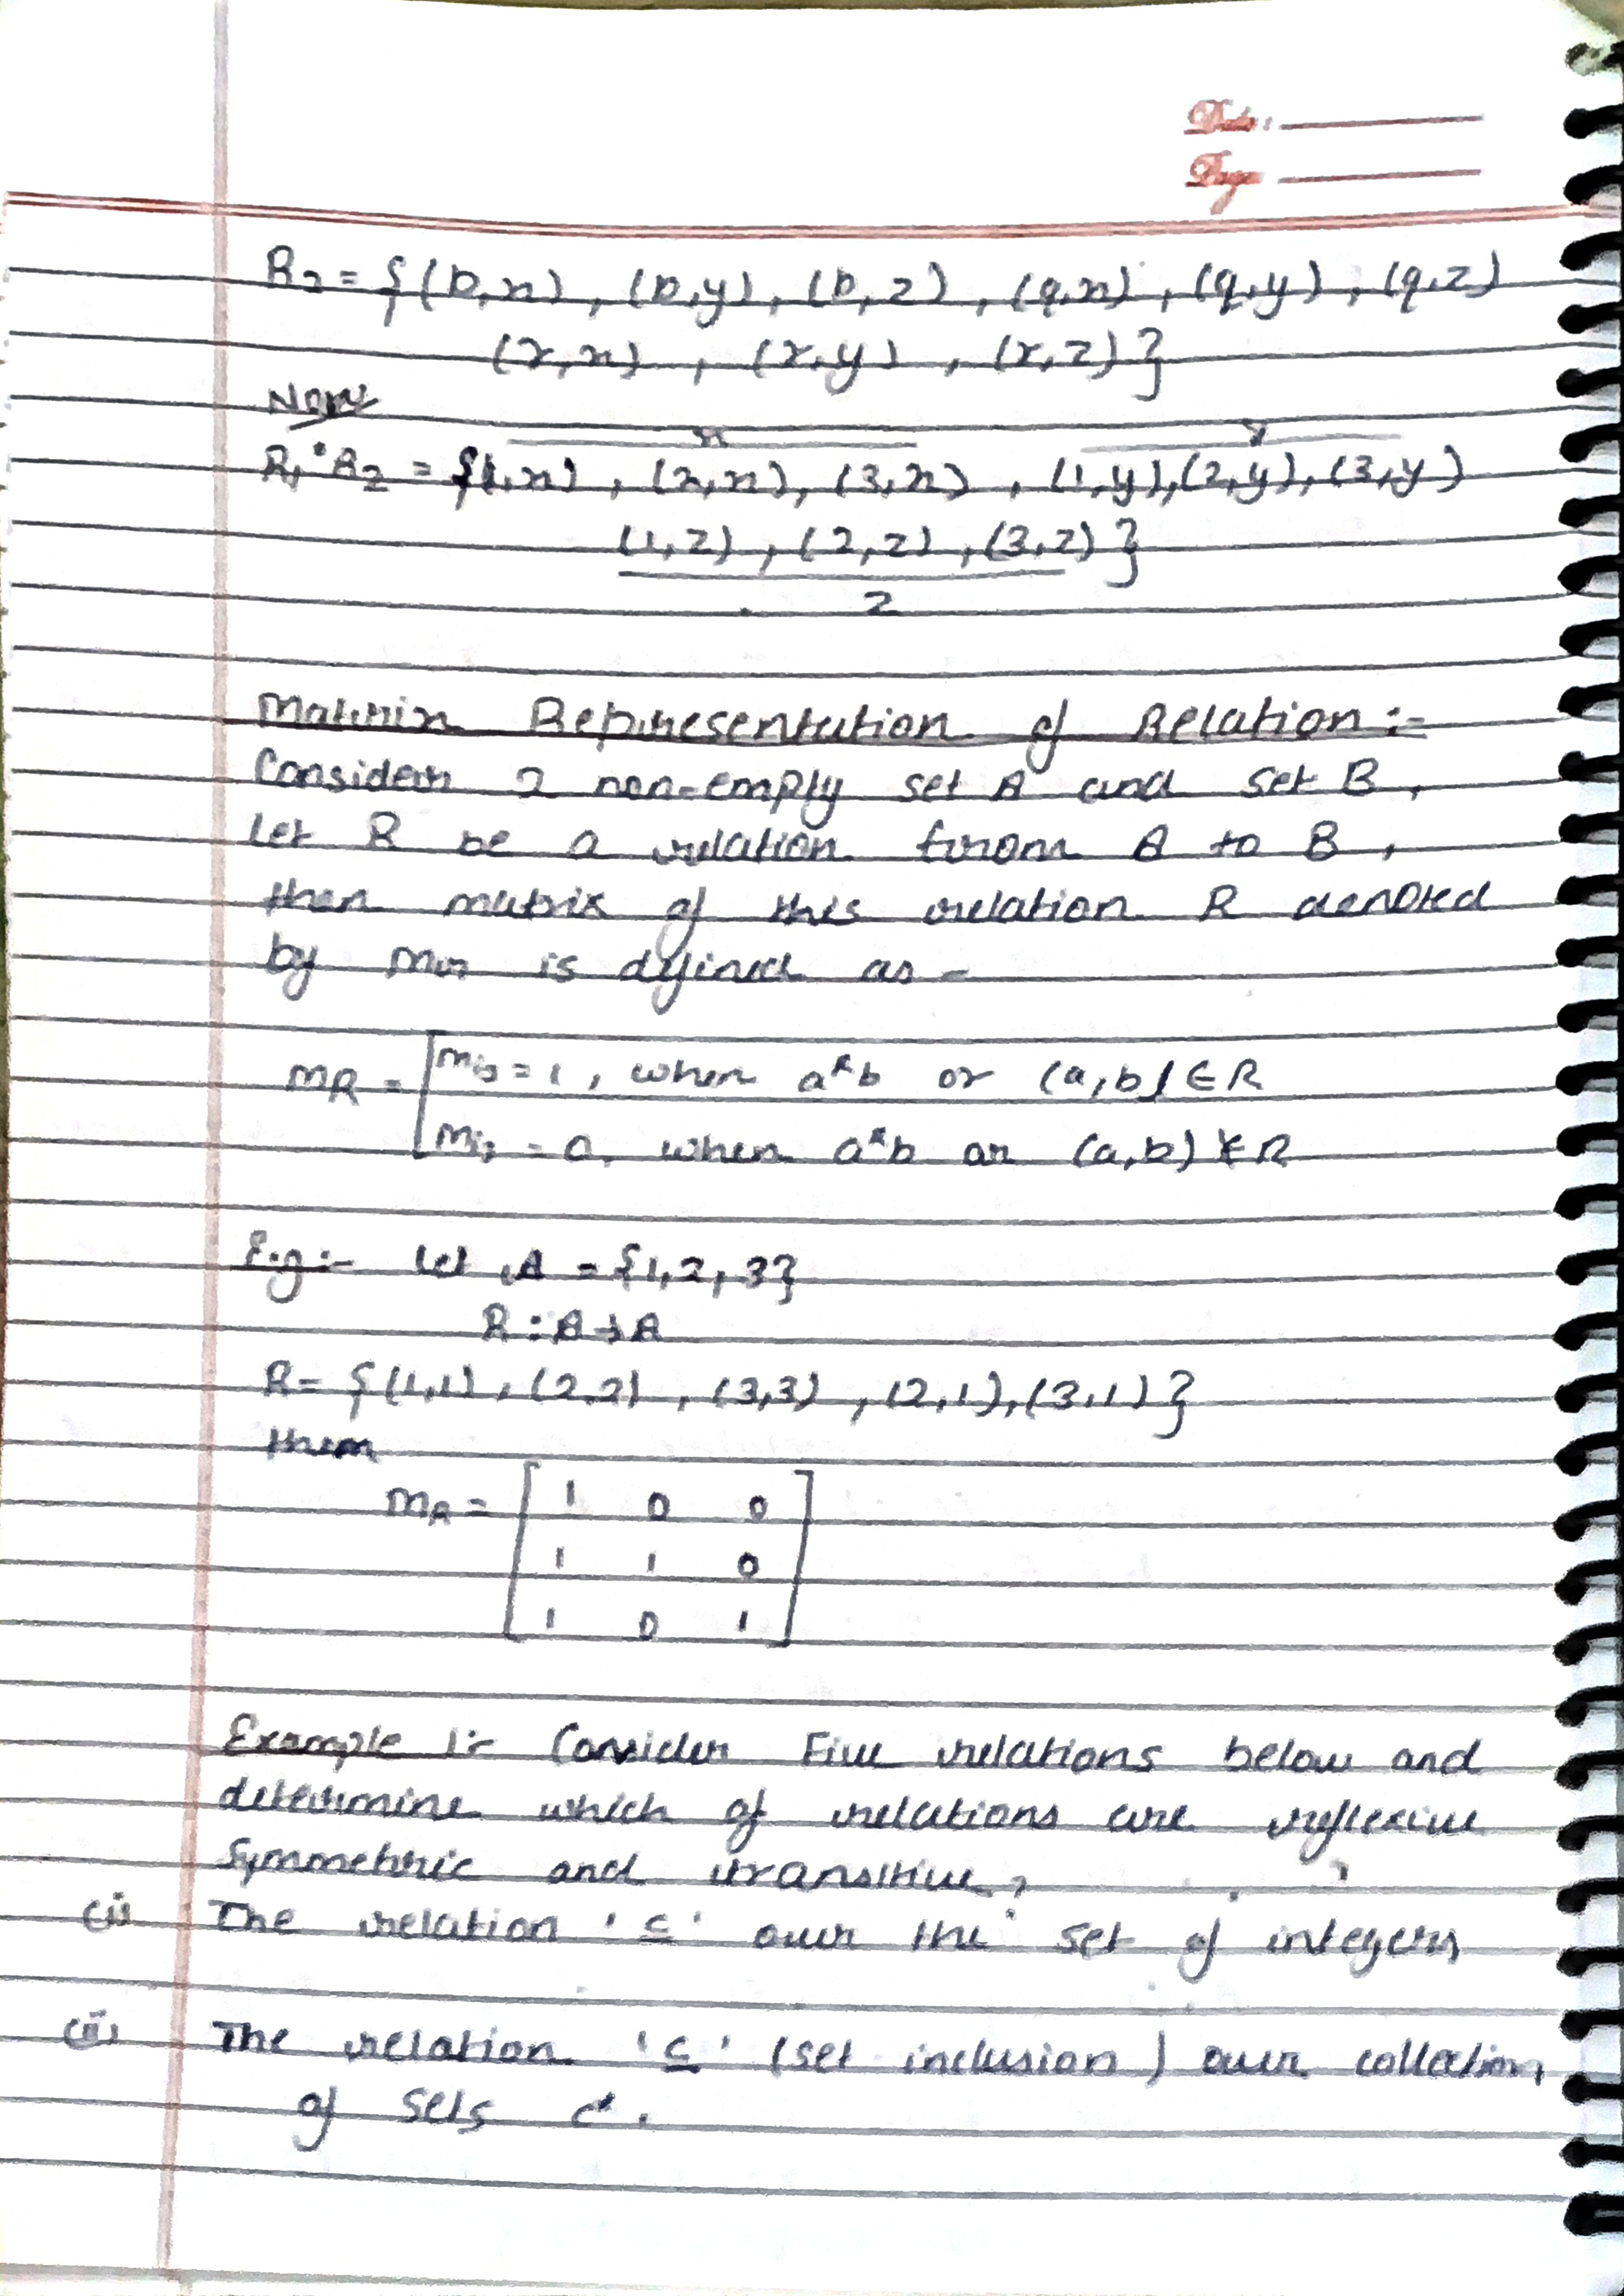 Date:
Page
R2 = {(p,x), (p,y), (p,z), (q,x), (q,y), (q,z)
(r,x), (r,y), (r,z)}
Now
x y
R1•R2 = {(1,x), (2,x), (3,x), (1,y),(2,y),(3,y)
(1,z), (2,z), (3,z)}
z
Matrix Representation of Relation:-
Consider 2 non-empty set A and set B,
Let R be a relation from A to B,
then matrix of this relation R denoted
by mR is defined as -
MR = [mij = 1, when aRb or (a,b) ∈ R
mij = 0, when aRb or (a,b) ∉ R
E.g:- let A = {1,2,3}
R : A→A
R= {(1,1), (2,2), (3,3), (2,1),(3,1)}
then
MR = [ 1 0 0 ]
1 1 0
1 0 1
Example 1:- Consider Five relations below and
determine which of relations are reflexive
Symmetric and transitive,
(i) The relation '≤' over the set of integers
(ii) The relation '⊆' (set inclusion) over collection
of sets c.